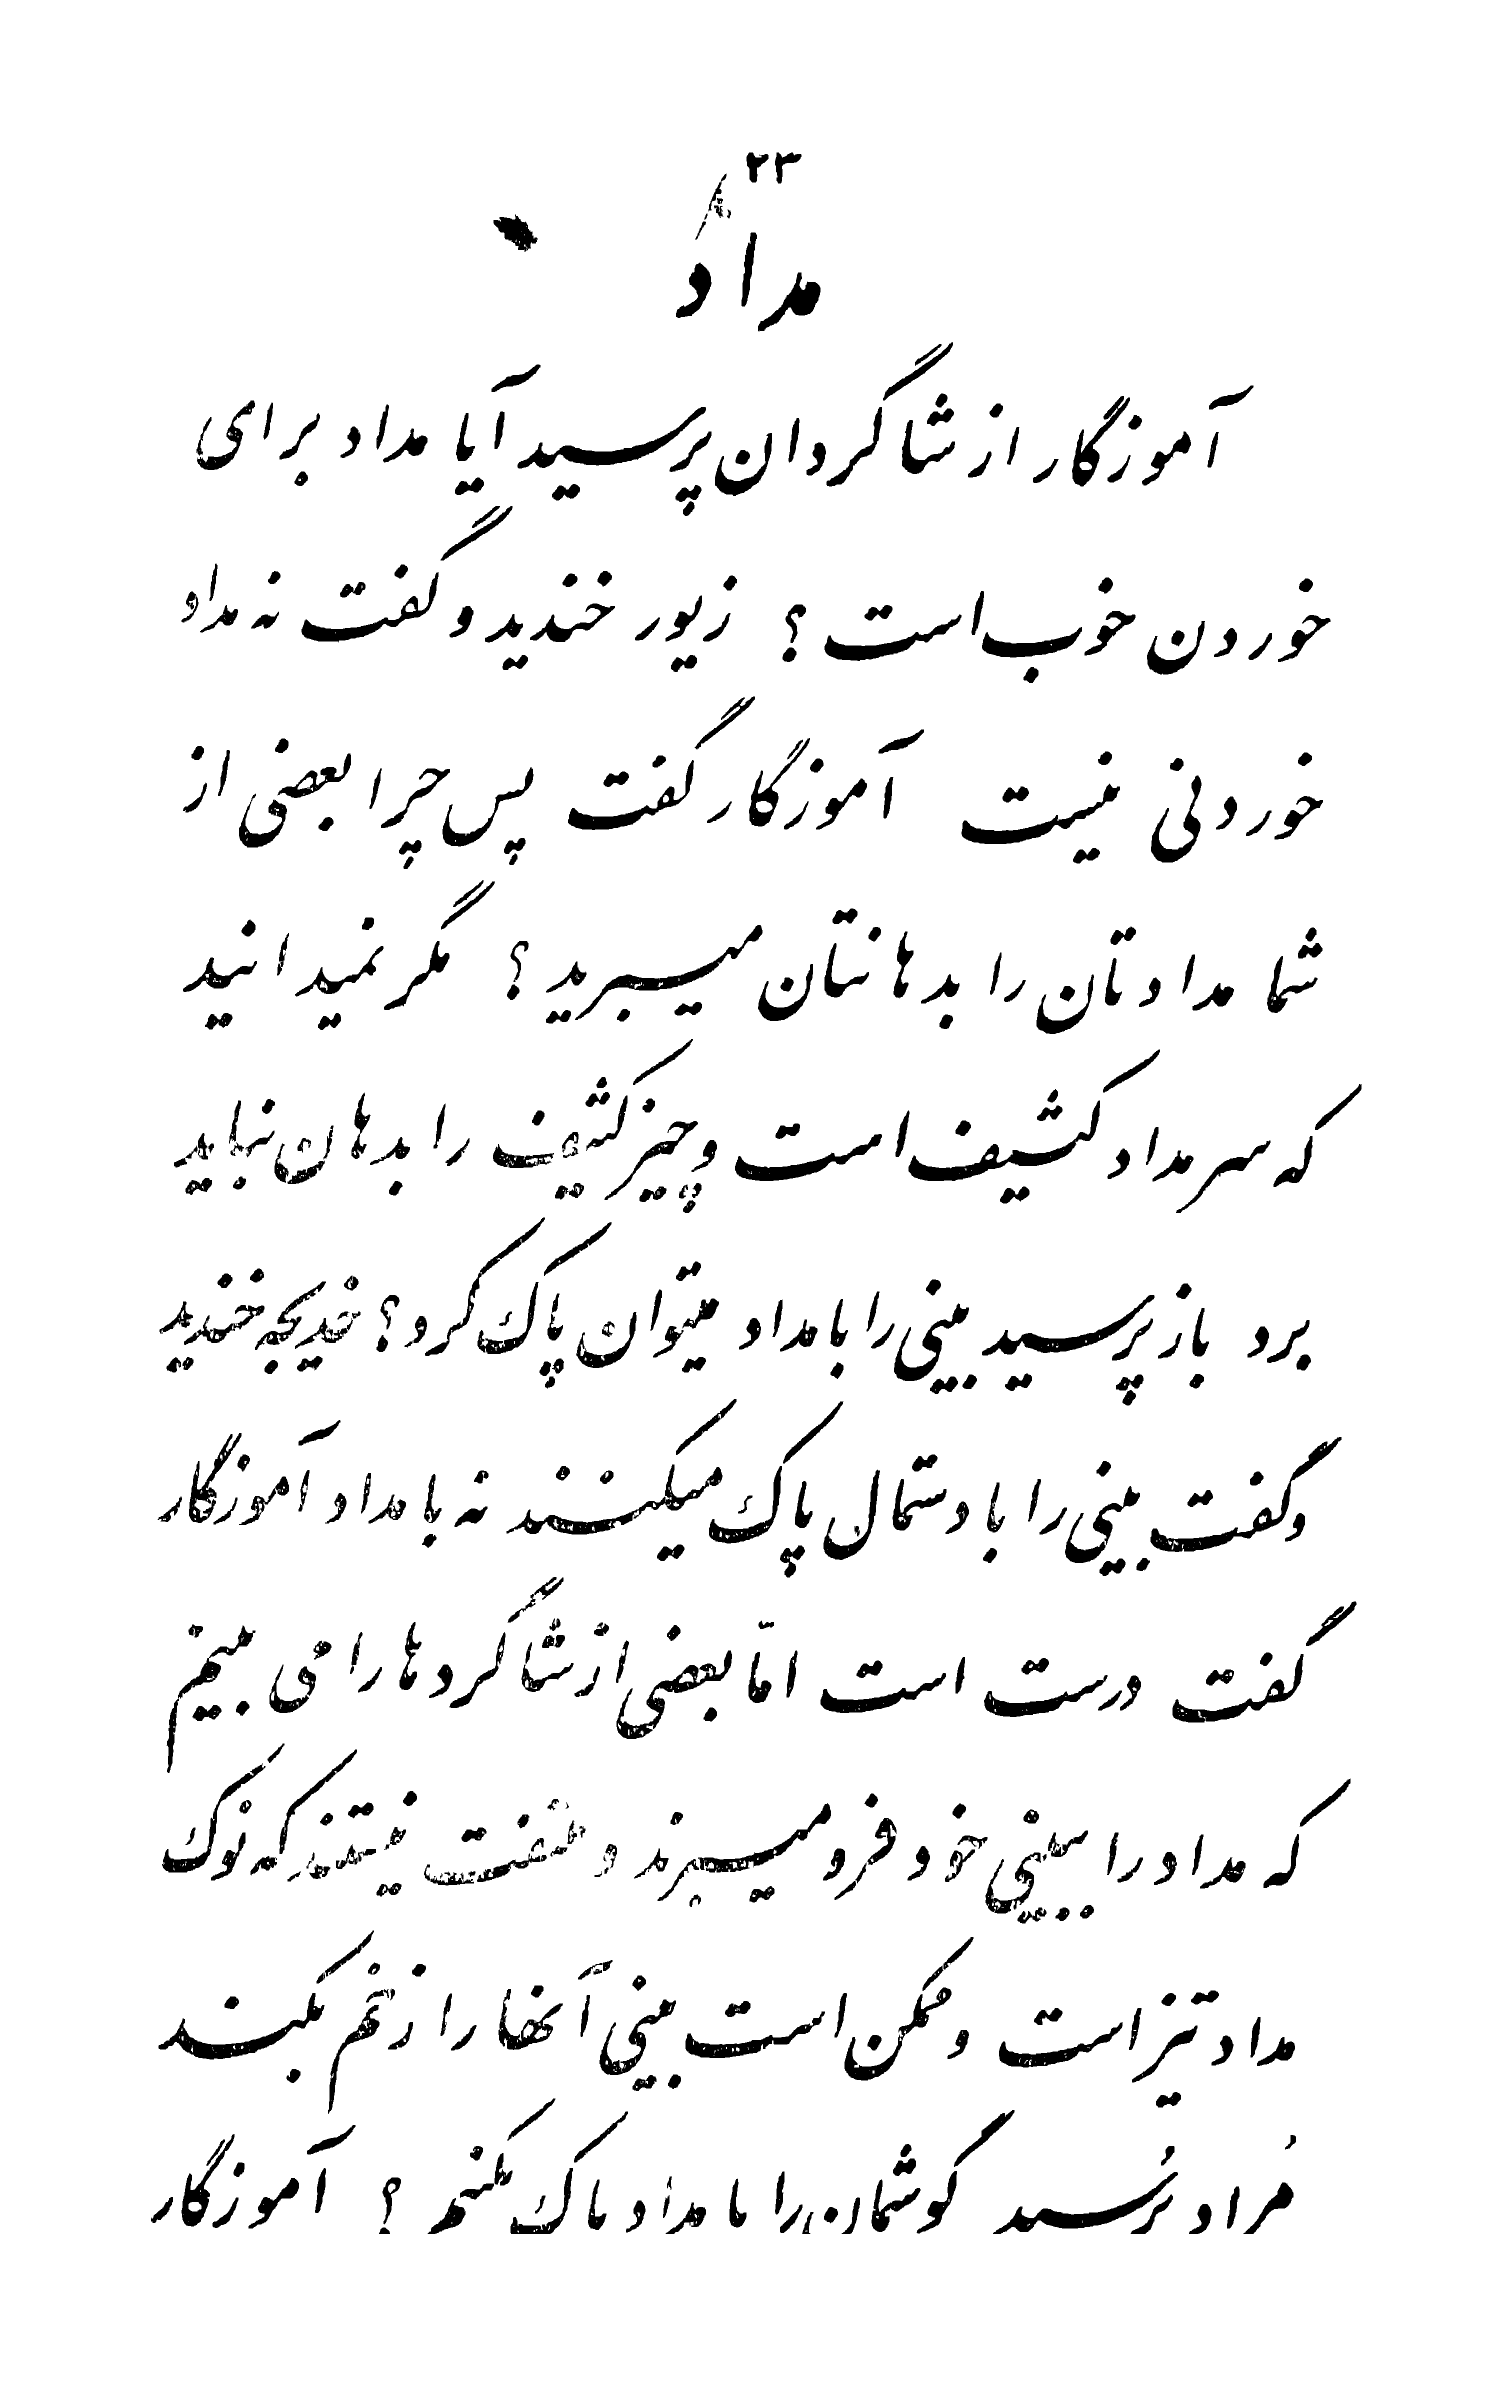 ۲۳
مداد
آموزگار از شاگردان پرسید آیا مداد برای
خوردن خوب است ؟ زیور خندید و گفت نه مداد
خوردنی نیست آموزگار گفت پس چرا بعضی از
شما مدادتان را بدهانتان میبرید ؟ مگر نمیدانید
که سر مداد کثیف است و چیز کثیف را بدهان نباید
برد باز پرسید بینی را با مداد میتوان پاک کرد ؟ خدیجه خندید
و گفت بینی را با دستمال پاک میکنند نه با مداد آموزگار
گفت درست است امّا بعضی از شاگردها را می بینم
که مداد را ببینی خود فرو میبرند و ملتفت نیستند که نوک
مداد تیز است و ممکن است بینی آنها را زخم بکند
مُراد پُرسید گوشمان را با مداد پاک بکنیم ؟ آموزگار